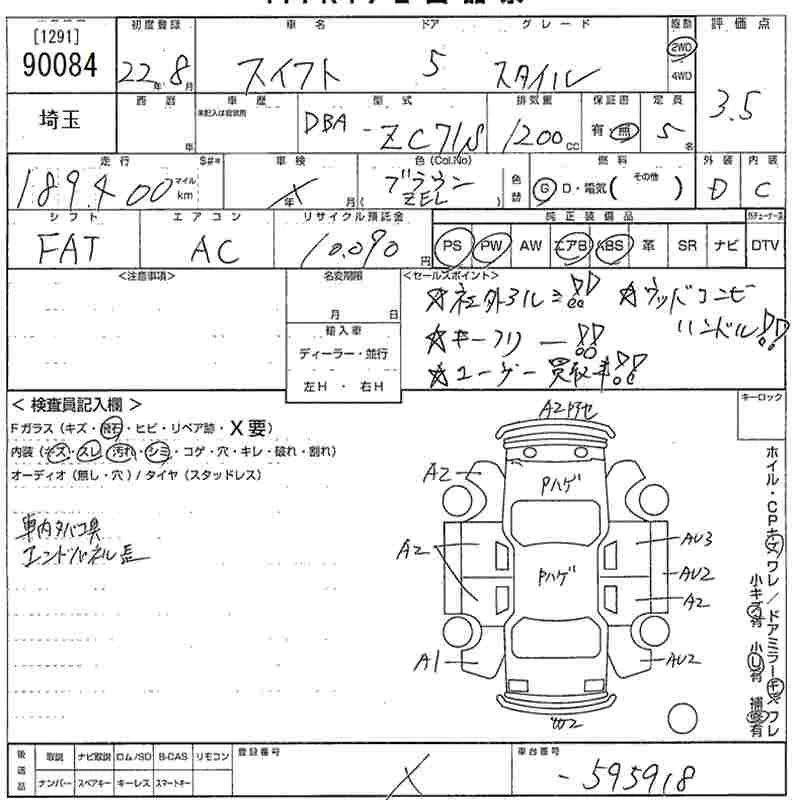 [1291] 初度登録 車名 ドア グレード 駆動 評価点
90084 22年8月 スイフト 5 スタイル 2WD 4WD 3.5
埼玉 西暦 車歴 型式 排気量 保証書 定員
年 未記入は自家用 DBA -ZC71S 1200cc 有・無 5名
走行 $#* 車検 色(Col.No) 燃料 外装 内装
189,400 マイル km X年 月 ブラウン (ZEL) 色替 G・D・電気( その他 ) D C
シフト エアコン リサイクル預託金 純正装備品
FAT AC 10,090円 PS PW AW エアB ABS 革 SR ナビ DTV
<注意事項> 名変期限 <セールスポイント>
月 日 ☆社外アルミ!! ☆ウッドコンビ
輸入車 ハンドル!!
ディーラー・並行 ☆キーフリー!!
左H・右H ☆ユーザー買取車!!
<検査員記入欄> キーロック
Fガラス(キズ・飛石・ヒビ・リペア跡・X要)
内装(キズ・スレ・汚れ・シミ・コゲ・穴・キレ・破れ・割れ)
オーディオ(無し・穴)/タイヤ(スタッドレス)
車内タバコ臭
エンドパネル
A2
A2
A2
A1
Pハゲ
Pハゲ
AU3
AU2
A2
AU2
ホイル・CPキズワレ/ドアミラーキズワレ
小キズ有 小U有 補修有
後送品 取説 ナビ取説 ロム/SD B-CAS リモコン 登録番号 車台番号
ナンバー スペアキー キーレス スマートキー X -595918